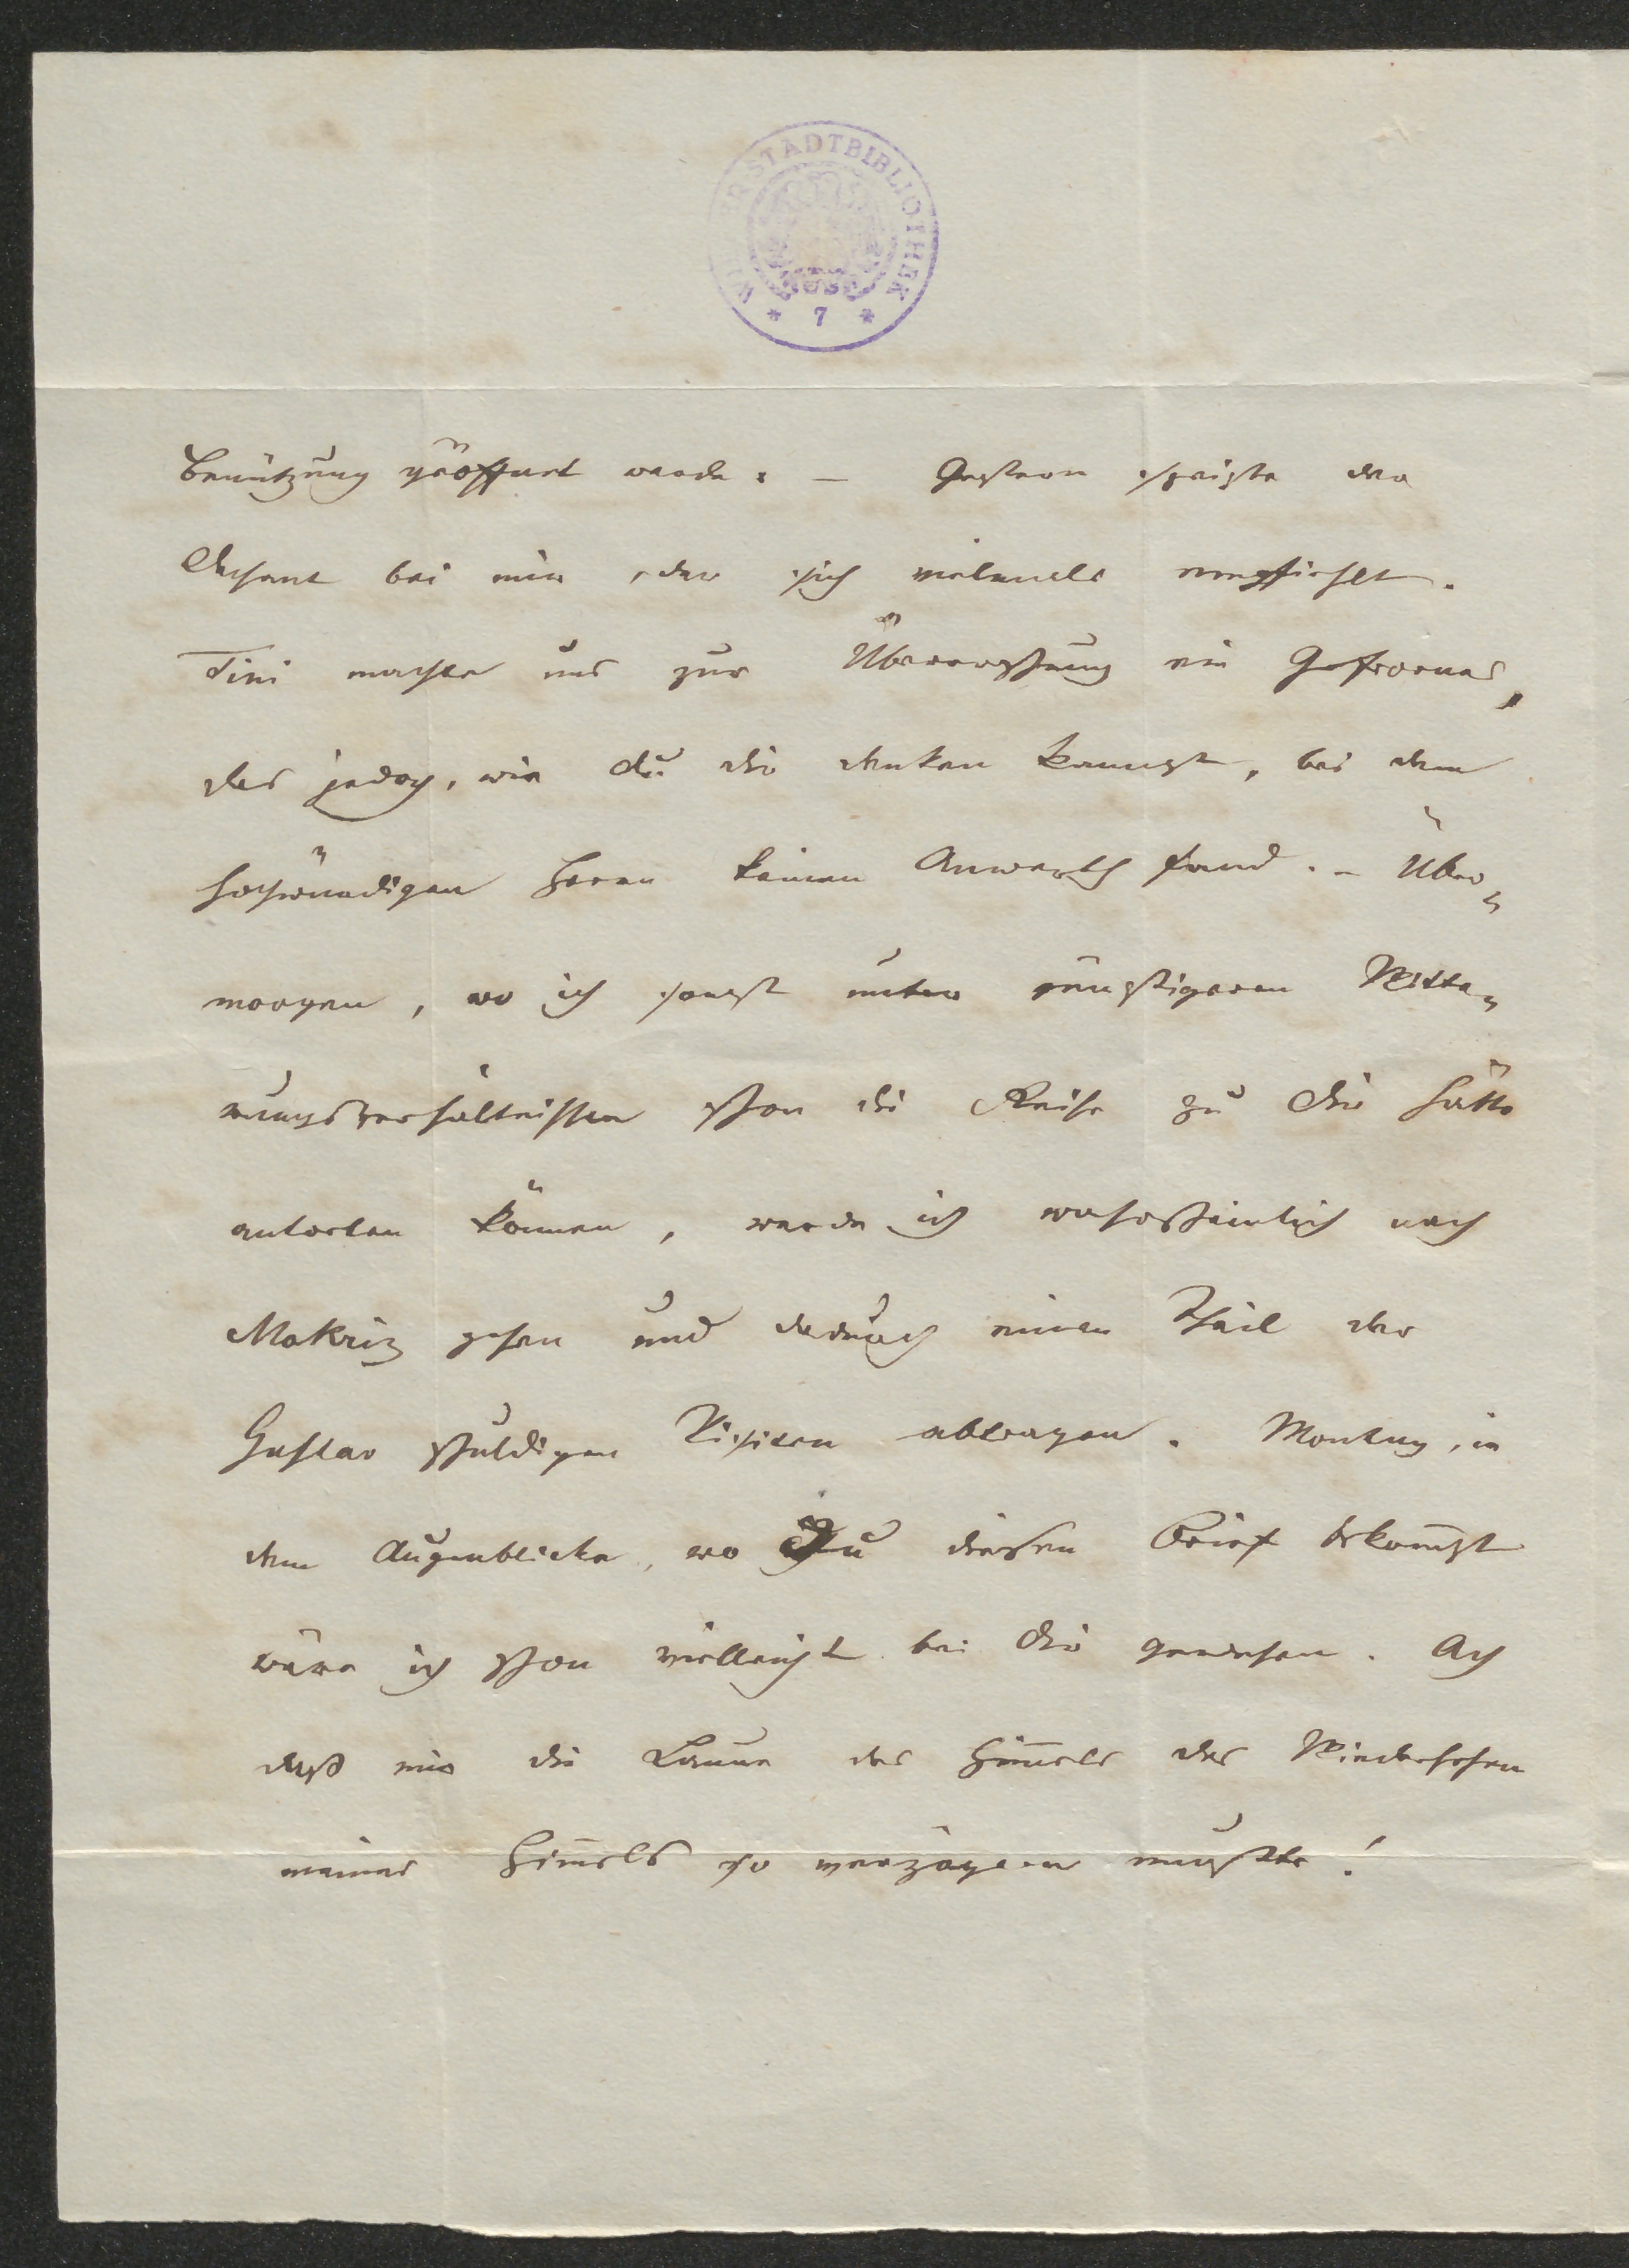 WIENER STADTBIBLIOTHEK
* 7 *
Benützung geöffnet werde. – Gestern speiste der
Dechant bei mir, der sich vielmals empfiehlt.
Tini machte uns zur Überraschung ein Gefrornes,
das jedoch, wie du dir denken kannst, bei dem
hochwürdigen Herrn keinen Anwerth fand. – Über-
morgen, wo ich sonst unter günstigeren Witte-
rungsverhältnissen schon die Reise zu Dir hätte
antreten können, werde ich wahrscheinlich nach
Mokriz gehen und dadurch einen Theil der
Gustav schuldigen Visiten abtragen. Montag, in
dem Augenblicke, wo Du diesen Brief bekommst
wäre ich schon vielleicht bei Dir gewesen. Ach
daß mir die Laune des Himmels das Wiedersehen
meines Himmels so verzögern mußte!